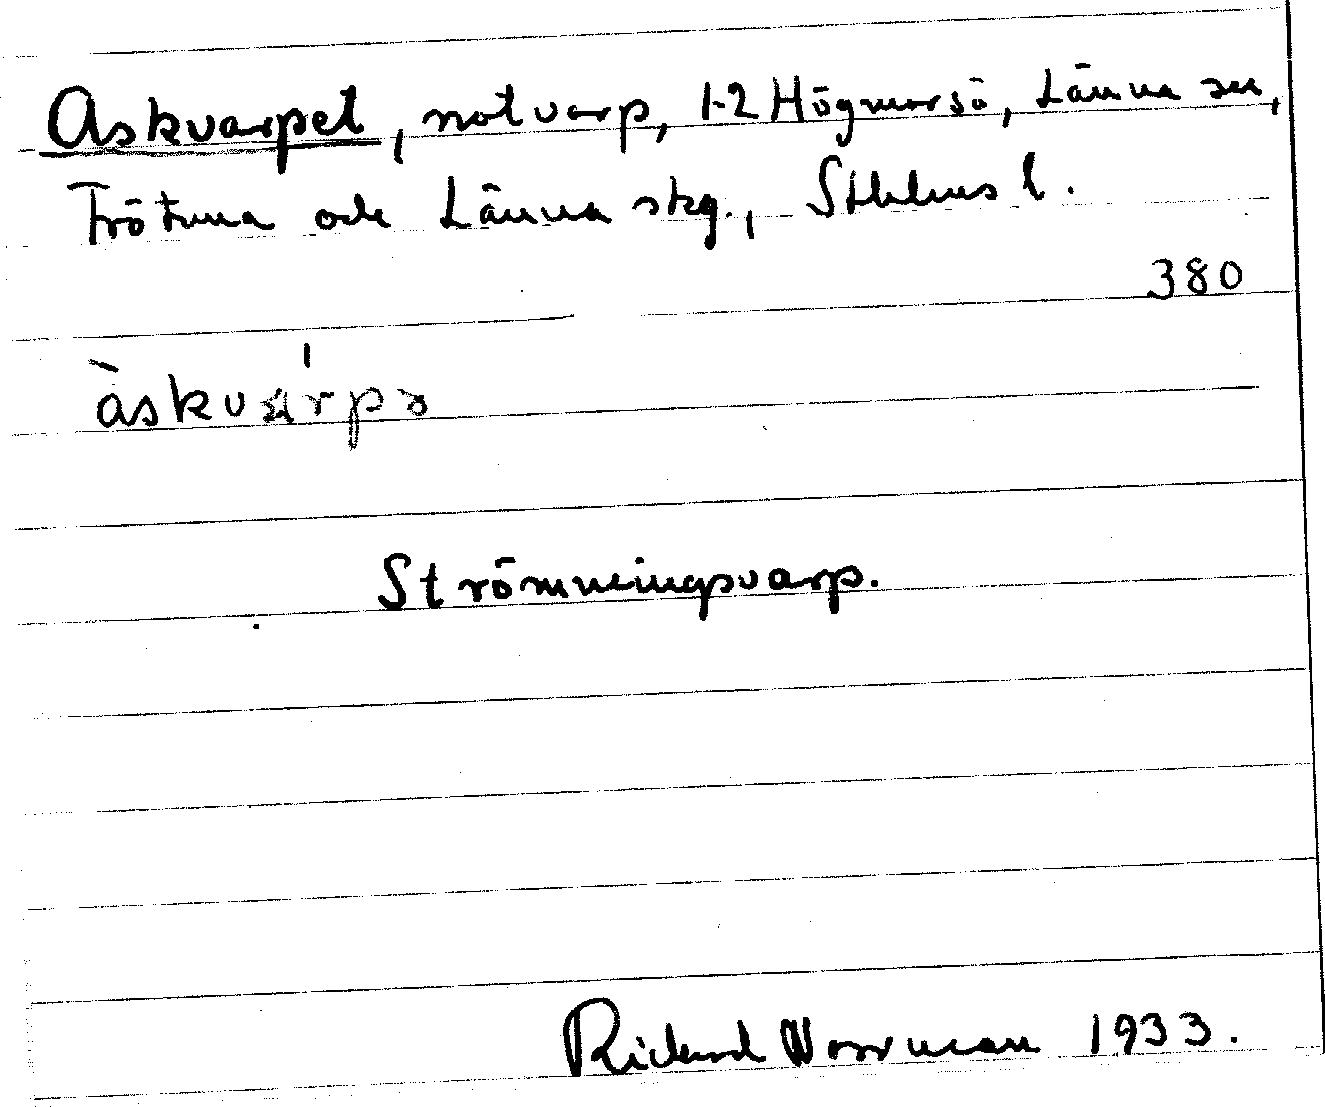 Askvarpet, notvarp, 1-2 Högmarsö, Länna sn,
Frötuna och Länna skg., Sthlms l.
380
àskvárpə
Strömmingsvarp.
Rickard Norrman 1933.